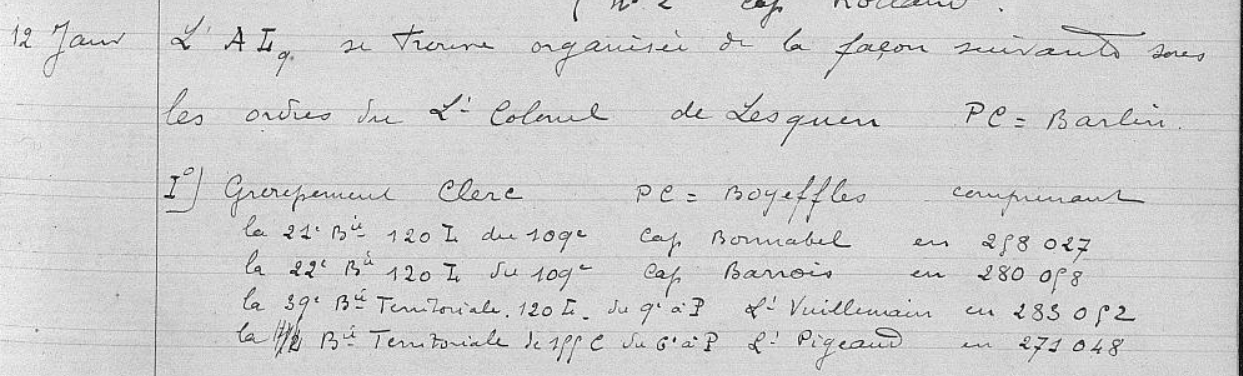 n° 2 Cap Rolland.
12 Janv L'A L9 se trouve organisée de la façon suivante sous
les ordres du Lt Colonel de Lesquen PC = Barlin.
I°) Groupement Clerc PC = Boyeffles comprenant
la 21e Bie 120 L du 109e Cap Bonnabel en 258 027
la 22e Bie 120 L du 109e Cap Barrois en 280 058
la 39e Bie Territoriale. 120 L. du 9e à P Lt Vuillemain en 283 052
la Bie Territoriale de 155 C du 6e à P Lt Pigeaud en 271 048